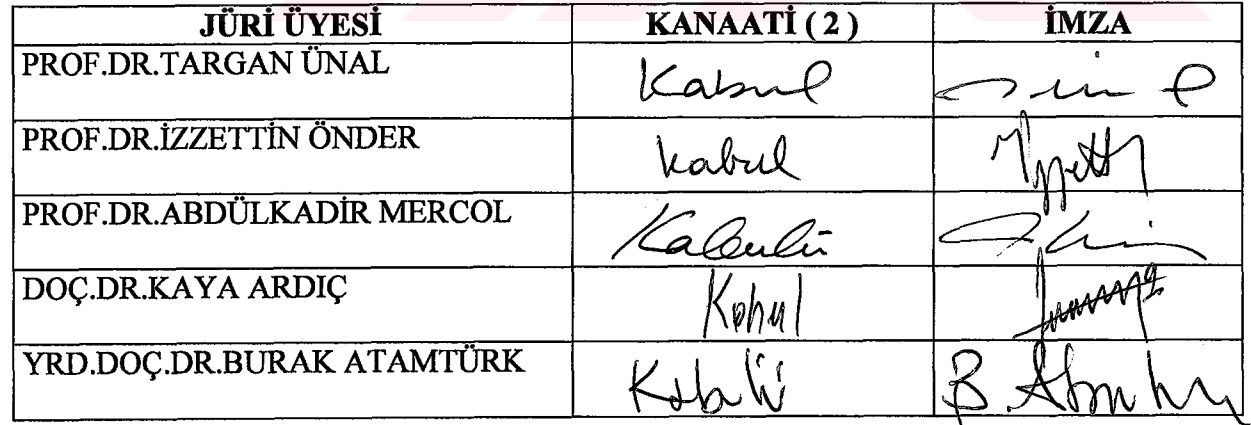 JÜRİ ÜYESİ KANAATİ ( 2 ) İMZA
PROF.DR.TARGAN ÜNAL Kabul
PROF.DR.İZZETTİN ÖNDER kabul
PROF.DR.ABDÜLKADİR MERCOL Kabulü
DOÇ.DR.KAYA ARDIÇ Kabul
YRD.DOÇ.DR.BURAK ATAMTÜRK Kabulü